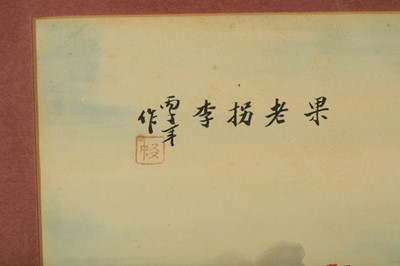 果老拐李
丙子年
作